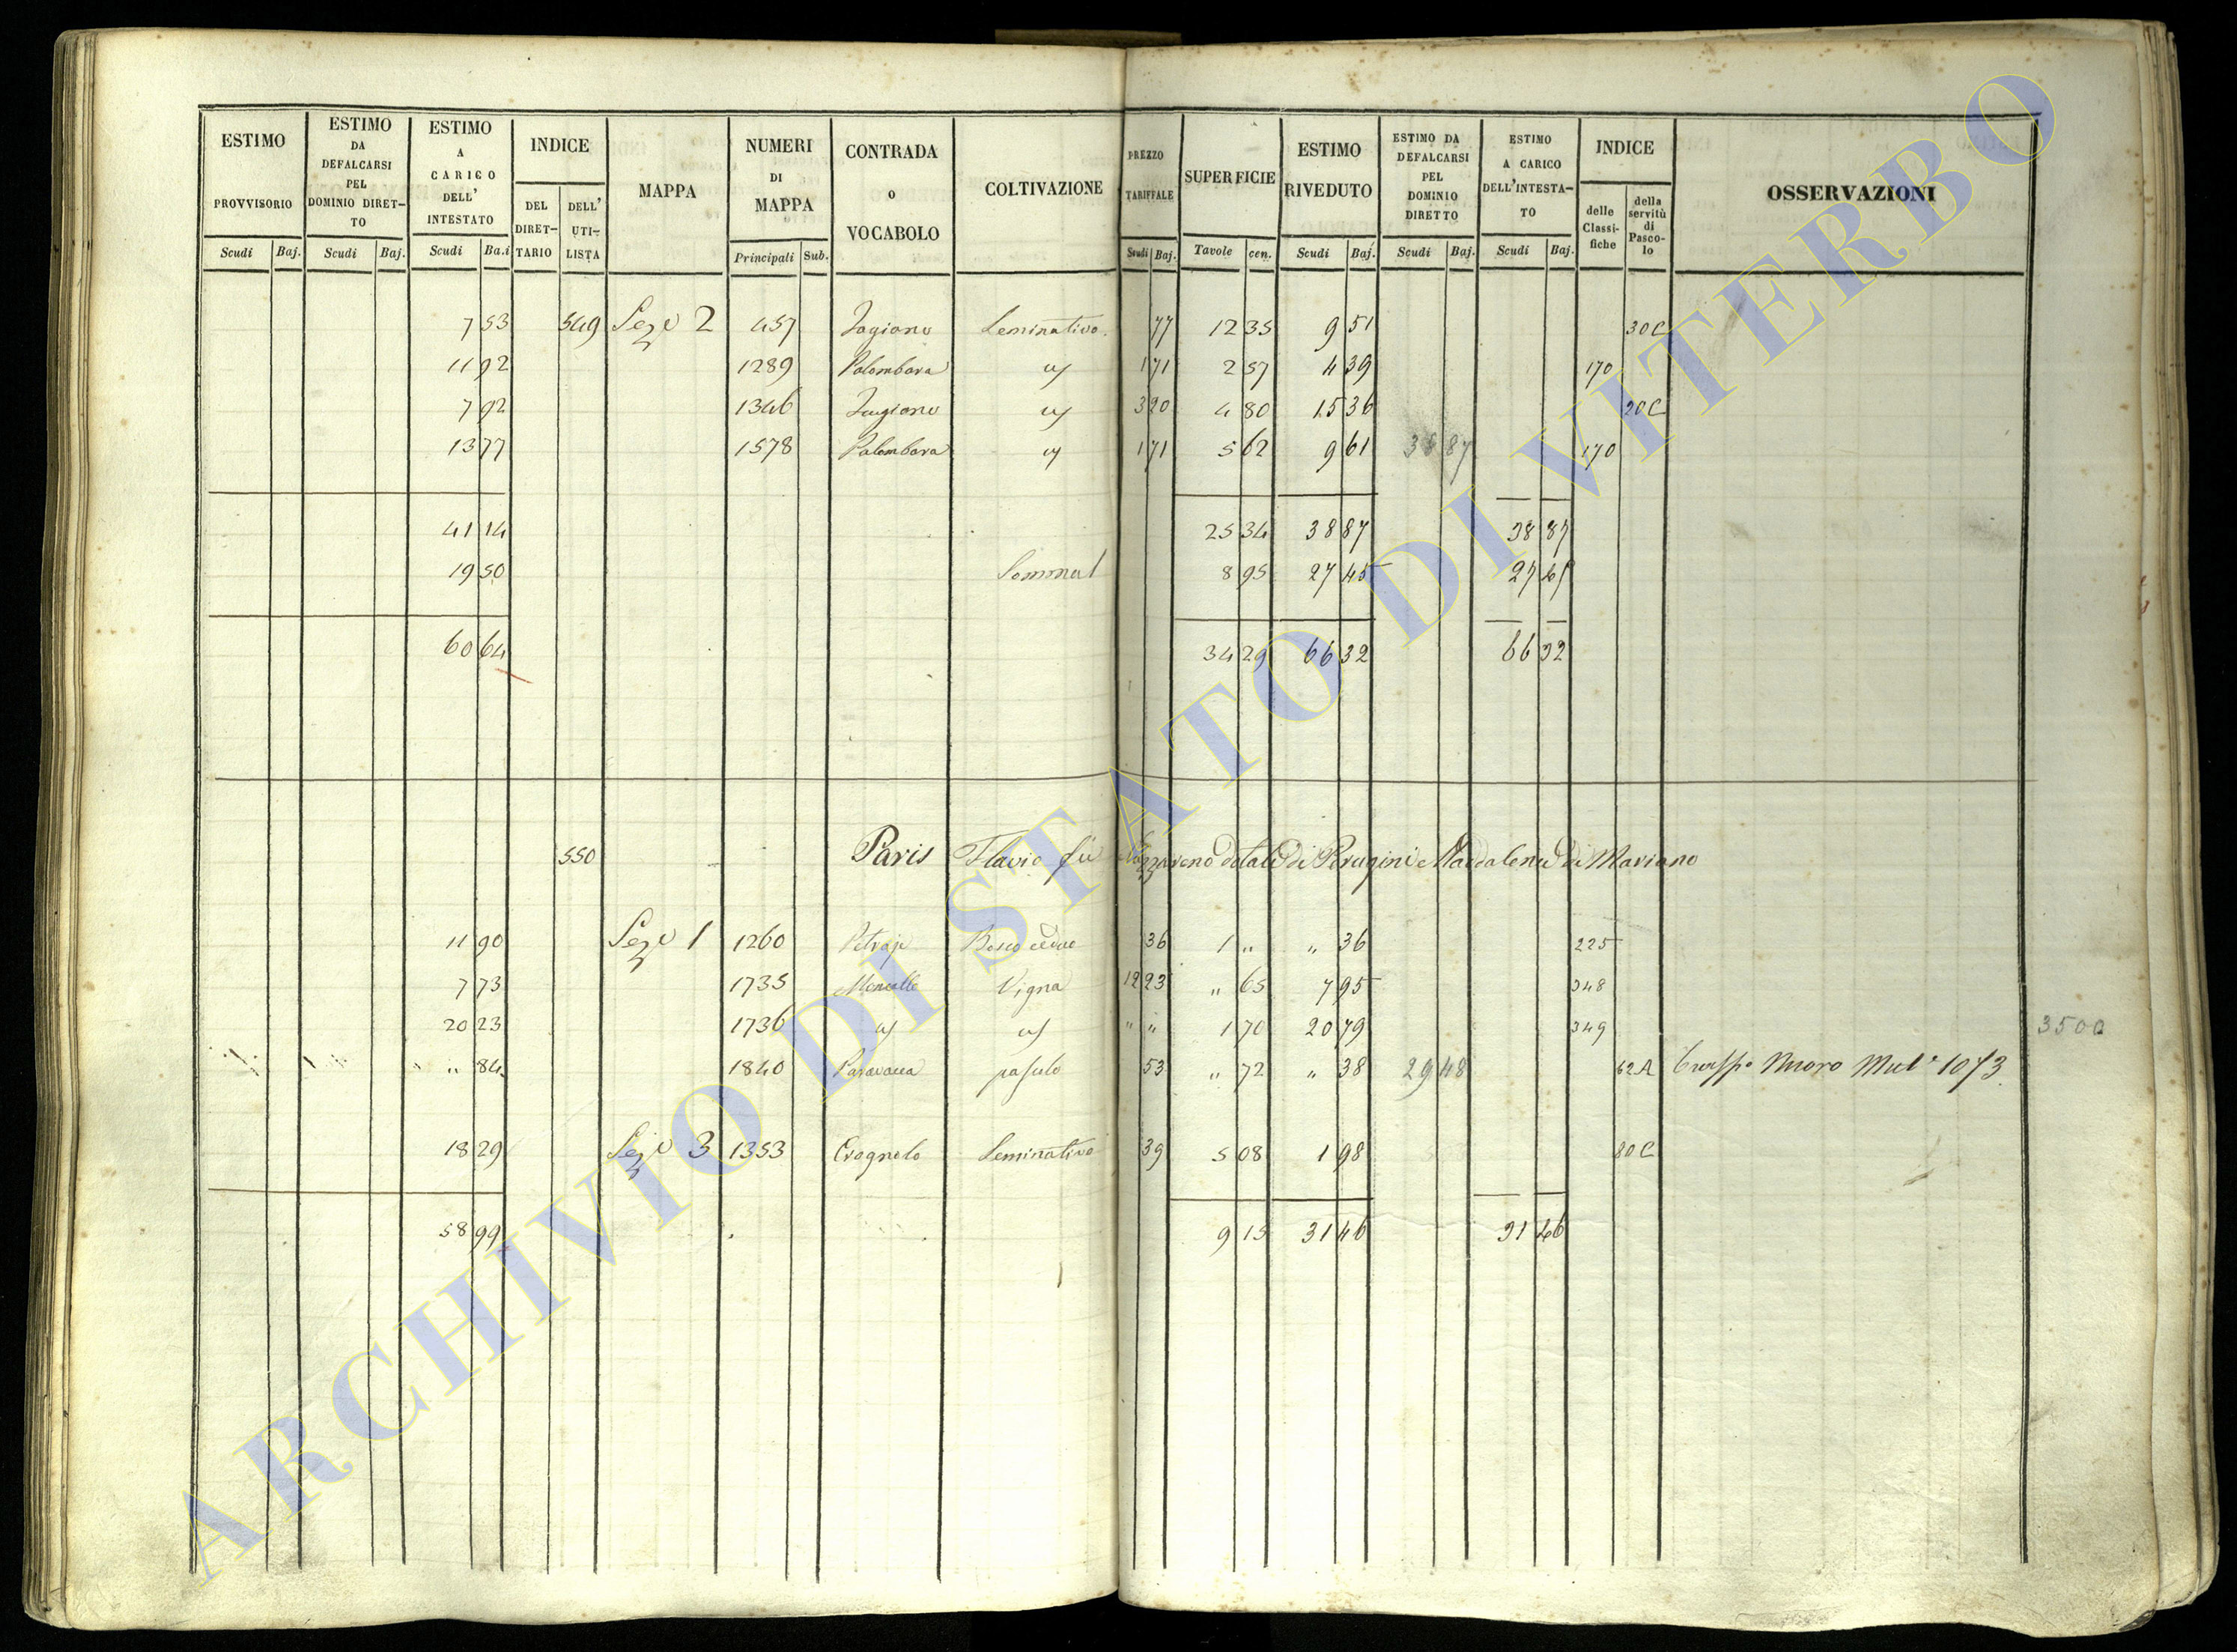 ESTIMO PROVVISORIO Scudi Baj.
ESTIMO DA DEFALCARSI PEL DOMINIO DIRET-TO Scudi Baj.
ESTIMO A CARICO DELL' INTESTATO Scudi Ba.i
INDICE DEL DIRET-TARIO DELL' UTI-LISTA
MAPPA
NUMERI DI MAPPA Principali Sub.
CONTRADA o VOCABOLO
COLTIVAZIONE
PREZZO TARIFFALE Scudi Baj.
SUPERFICIE Tavole cen.
ESTIMO RIVEDUTO Scudi Baj.
ESTIMO DA DEFALCARSI PEL DOMINIO DIRETTO Scudi Baj.
ESTIMO A CARICO DELL'INTESTA-TO Scudi Baj.
INDICE delle Classi-fiche della servitù di Pasco-lo
OSSERVAZIONI
7 53 549 Seze 2 457 Seminativo 77 12 35 9 51 30C
11 92 1289 Palombara 1 71 2 57 4 39 170
7 92 1346 3 20 4 80 15 36 20C
13 77 1578 Palombara 1 71 5 62 9 61 38 87 170
41 14 25 34 38 87 38 87
19 50 8 95 27 45 27 45
60 64 34 29 66 32 66 32
550 Paris Flavio fu Nazzareno dotale di Perugini Maddalena di Mariano
11 90 Seze 1 1260 Bosco ceduo 36 1 " " 36 225
7 73 1735 Vigna 12 23 " 65 7 95 348
20 23 1736 " " 1 70 20 79 349 3500
" 84 1840 53 " 72 " 38 29 48 62A 1073
18 29 Seze 3 1353 Crognolo Seminativo 39 5 08 1 98 80C
58 99 9 15 31 46 31 46
ARCHIVIO DI STATO DI VITERBO